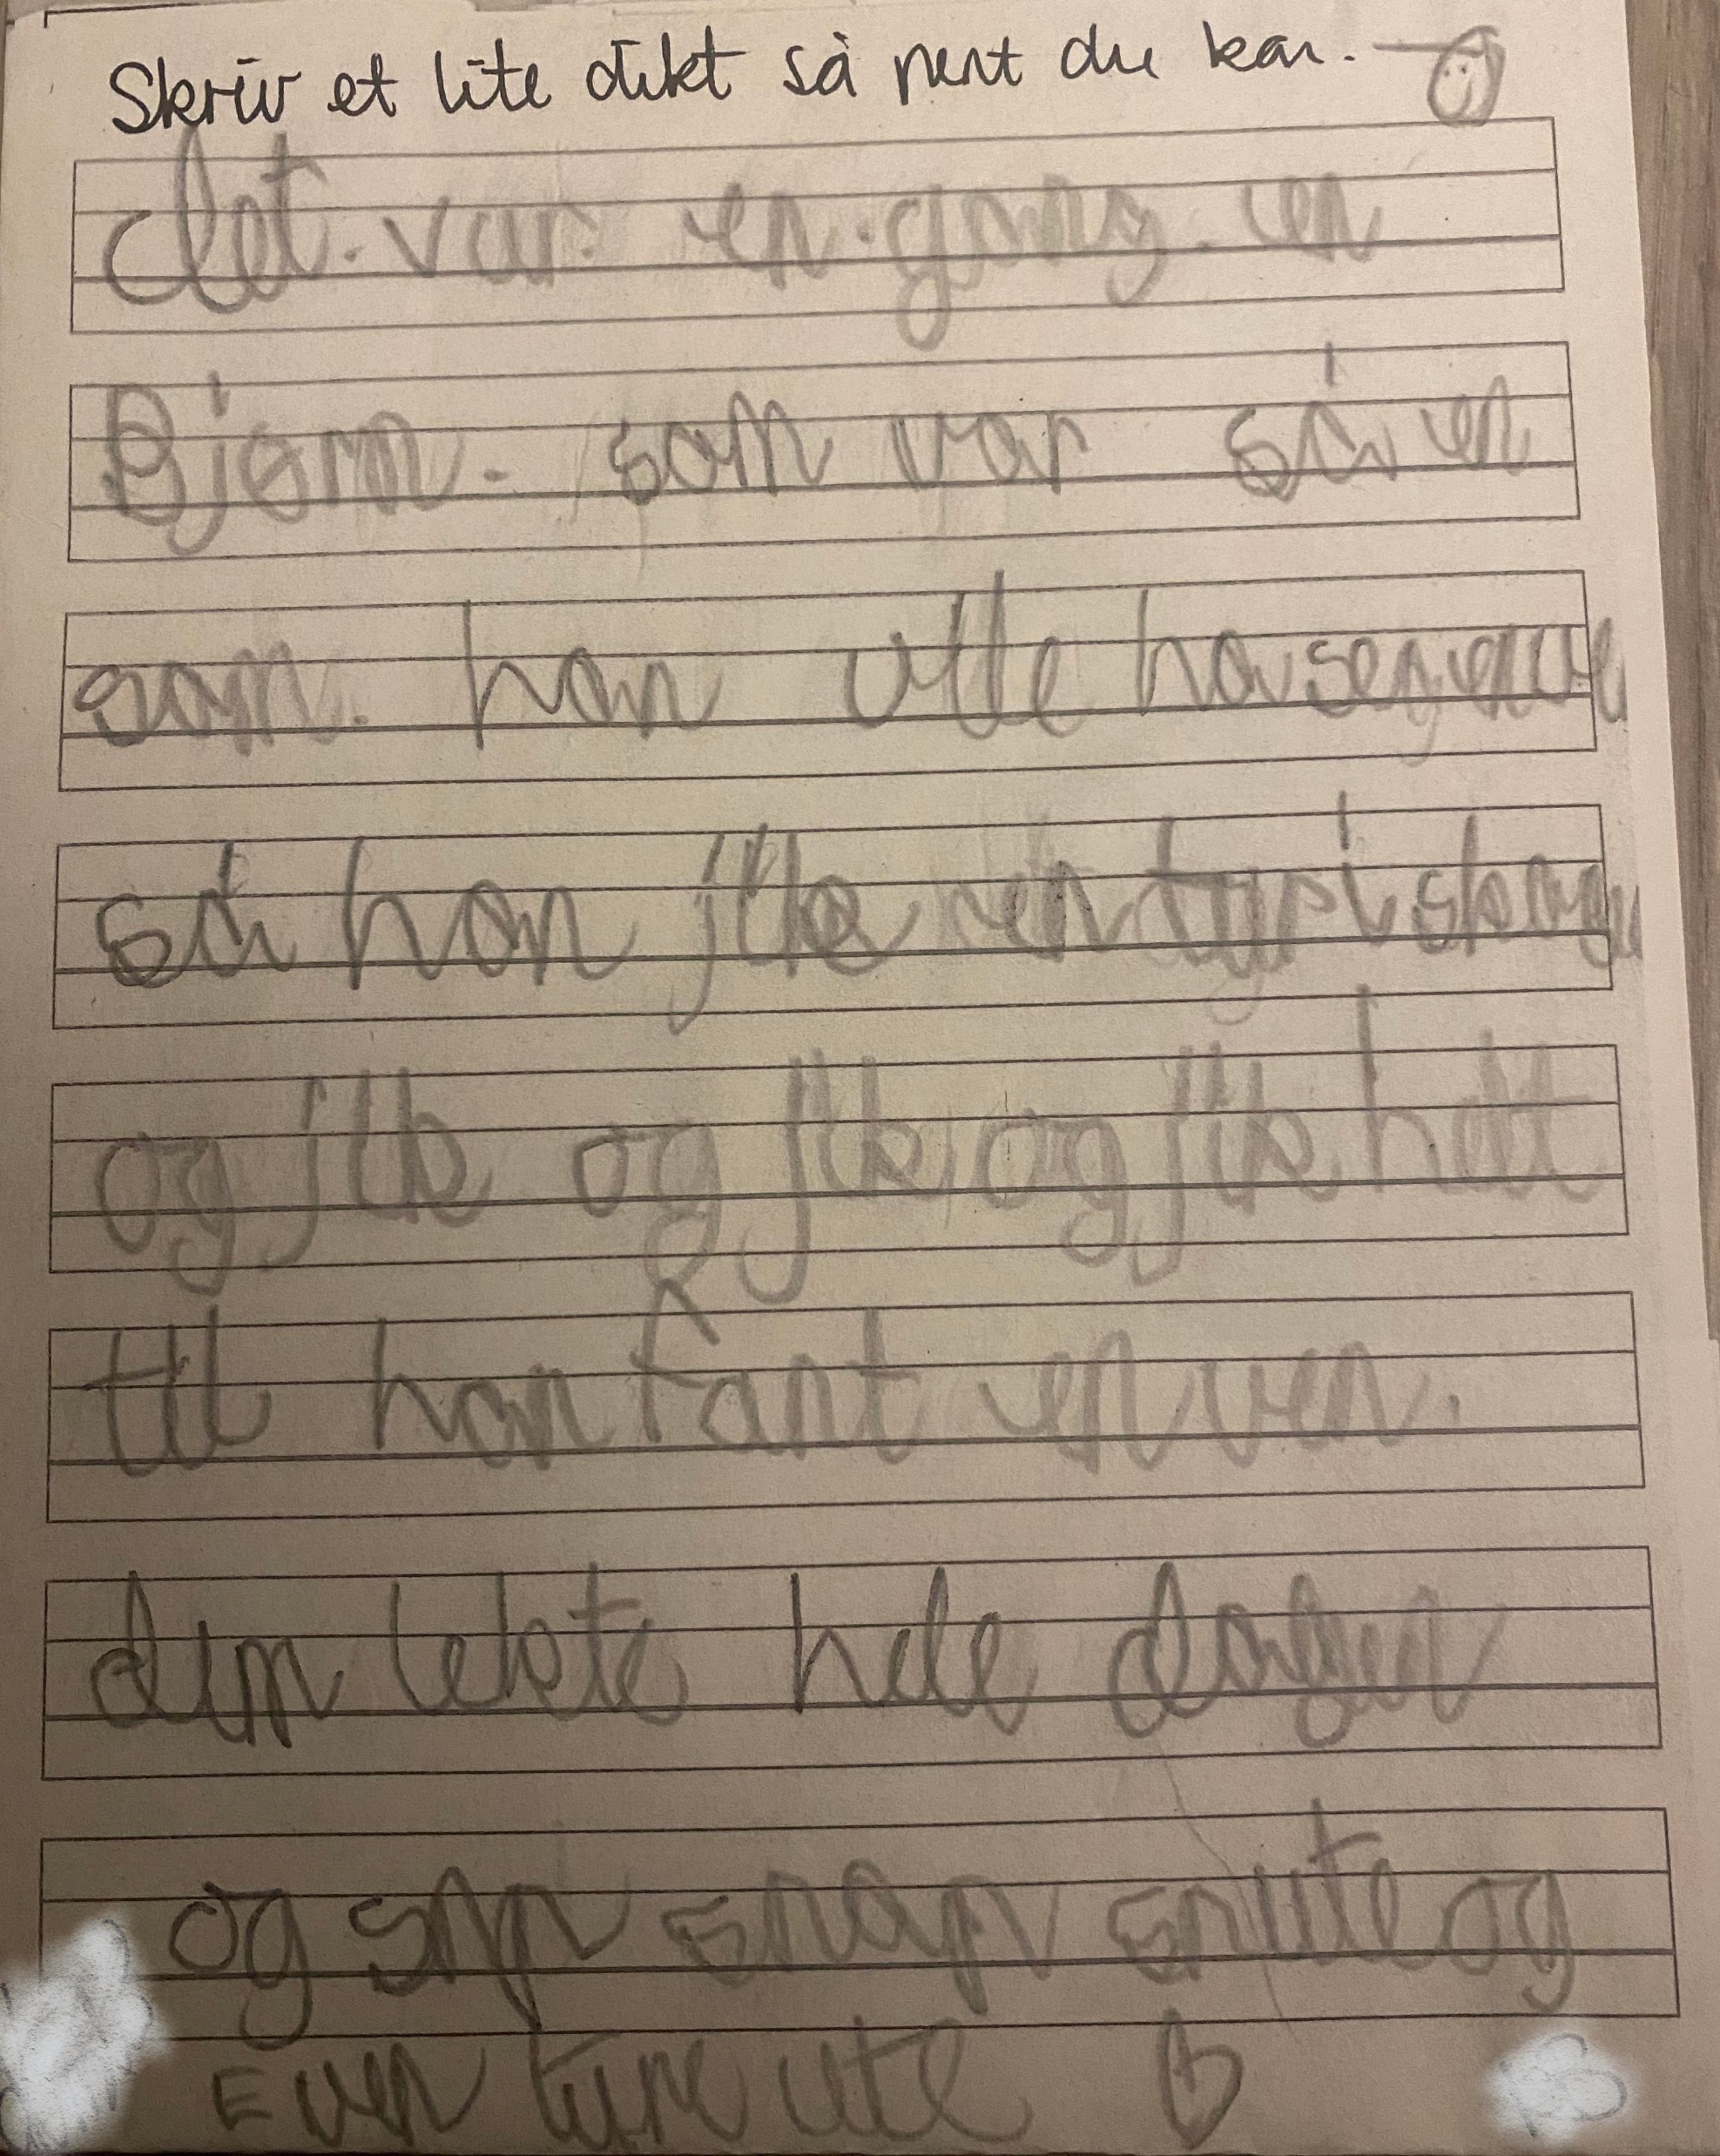 Skriv et lite dikt så pent du kan.
det. var. en. gang. en
Bjørn. som var så en
som. han ville ha seg en
så han jikk en tyr i skogen
og jik og jik og jik helt
til han fant en ven.
dem lekte hele dagen
og snip snap snute og
Even tyre ute